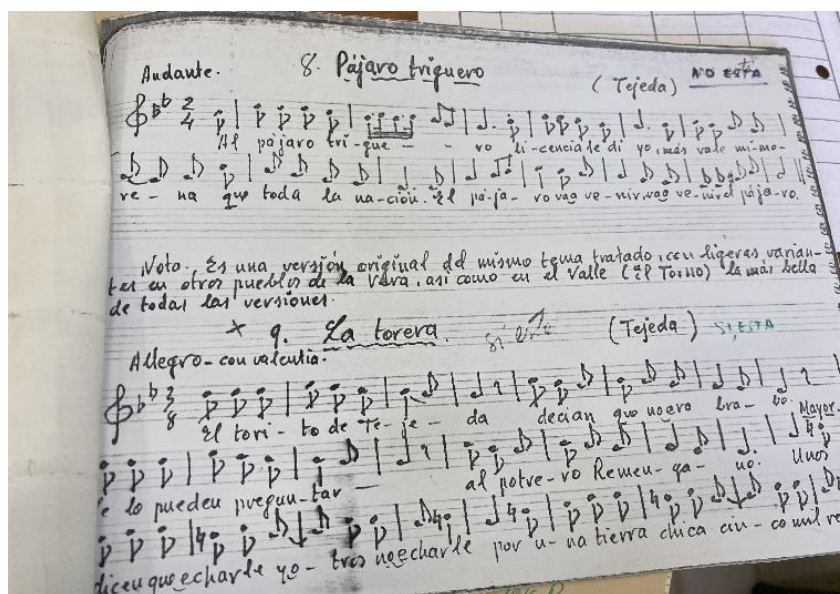 Andante. 8. Pájaro triguero (Tejeda) NO ESTA
2 4
Al pájaro tri-gue- - ro li-cencia le di yo, más vale mi mo-
re- na que toda la na-ción. El pá-ja- ro vaq ve-nir, vaq ve-nir el pájaro.
Nota. Es una versión original del mismo tema tratado, con ligeras varian-
tes en otros pueblos de la Vera, así como en el Valle (El Torno) la más bella
de todas las versiones.
x 9. La torera. si está (Tejeda) SI, ESTA
Allegro-con valentia.
3 8
El tori- to de Te-je- da decian que no era bra- bo. Mayor.
e lo pueden pregun-tar al potre-ro Remen-ga- no. Unos
dicen que echarle yo- tros no echarle por u-na tierra chica cin-co mil re